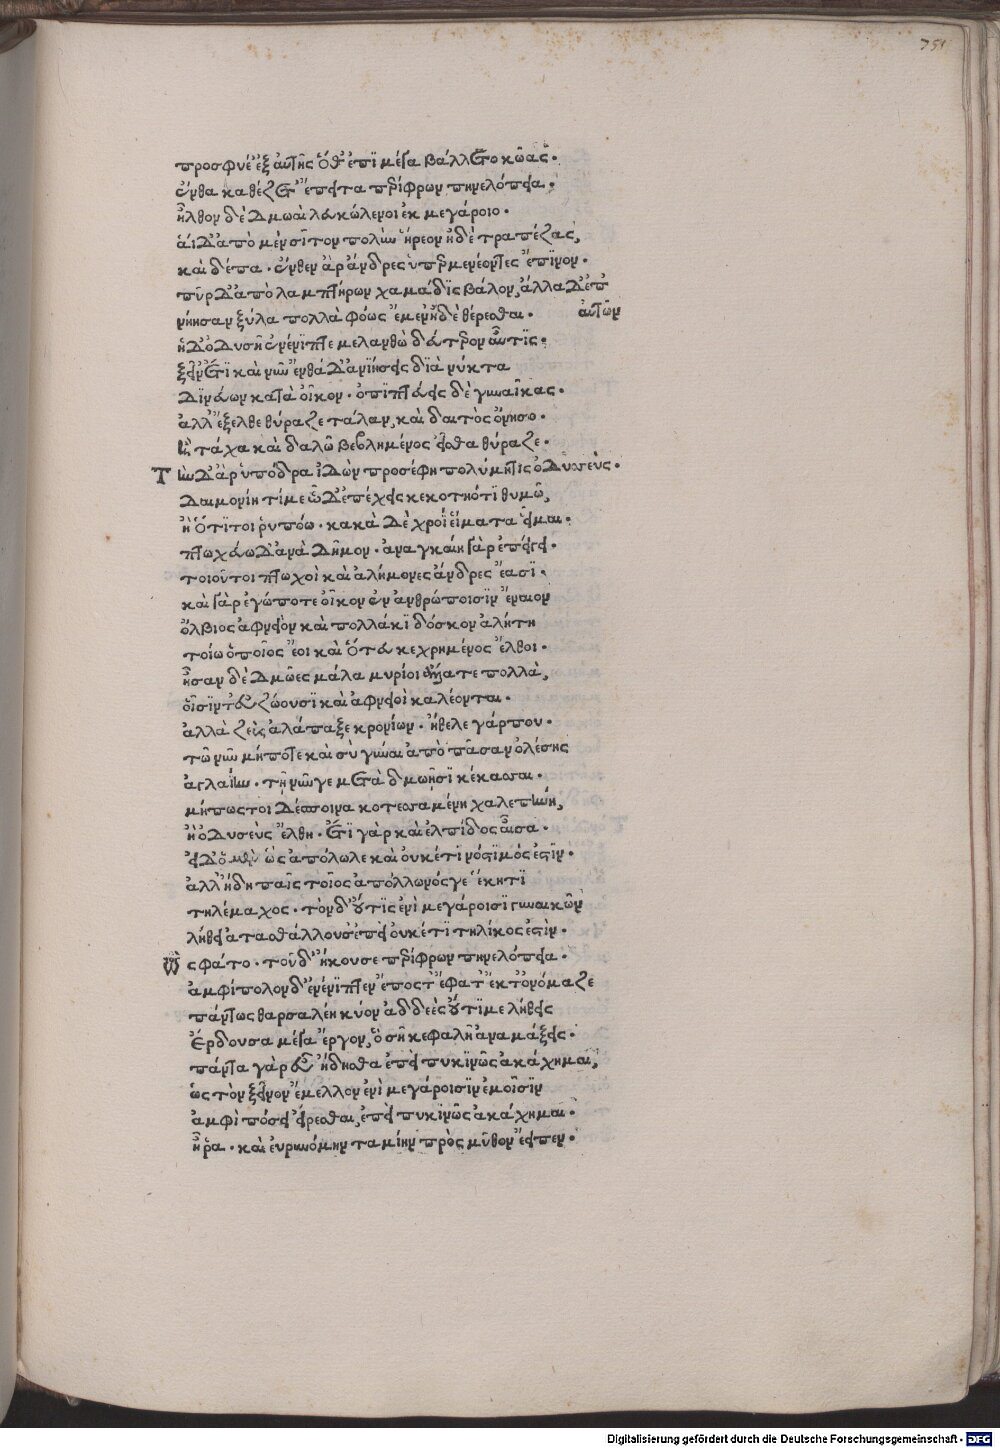 751
προσφυέ' ἐξ αὐτῆς ὅθ' ἐπὶ μέγα βάλλετο κῶας·
ἔνθα καθέζετ' ἔπειτα περίφρων πηνελόπεια·
ἦλθον δὲ δμωαὶ λευκώλενοι ἐκ μεγάροιο·
αἱ δ' ἀπὸ μὲν σῖτον πολὺν ἥρεον ἠδὲ τραπέζας,
καὶ δέπα· ἔνθεν ἀρ' ἄνδρες ὑπερμενέοντες ἔπινον·
πῦρ δ' ἀπὸ λαμπτήρων χαμάδις βάλον, ἄλλα δ' ἐπ'
νήησαν ξύλα πολλὰ φόως ἔμεν ἠδὲ θέρεσθαι· αὐτῶν
ἡ δ' ὀδυσῆ' ἐνένιπτε μελανθὼ δεύτερον αὖτις·
ξεῖν' ἔτι καὶ νῦν ἐνθάδ' ἀνιήσεις διὰ νύκτα
δινεύων κατὰ οἶκον· ὀπιπτεύεις δὲ γυναῖκας·
ἀλλ' ἔξελθε θύραζε τάλαν, καὶ δαιτὸς ὄνησο·
ἢ τάχα καὶ δαλῶ βεβλημένος εἶσθα θύραζε·
Τὴν δ' ἀρ' ὑπόδρα ἰδὼν προσέφη πολύμητις ὀδυσσεύς·
δαιμονίη τί με ὧδ' ἐπέχεις κεκοτηότι θυμῶ,
ἢ ὅτι τοι ῥυπόω· κακὰ δὲ χροῒ εἵματα εἷμαι·
πτωχεύω δ' ἀνὰ δῆμον· ἀναγκαίη γὰρ ἐπείγει·
τοιοῦτοι πτωχοὶ καὶ ἀλήμονες ἄνδρες ἔασι·
καὶ γὰρ ἐγώ ποτε οἶκον ἐν ἀνθρώποισιν ἔναιον
ὄλβιος ἀφνειὸν καὶ πολλάκι δόσκον ἀλήτη
τοίω ὁποῖος ἔοι καὶ ὅτευ κεχρημένος ἔλθοι·
ἦσαν δὲ δμῶες μάλα μυρίοι ἄλλά τε πολλὰ,
οἷσίν τ' εὖ ζώουσι καὶ ἀφνειοὶ καλέονται·
ἀλλὰ ζεὺς ἀλάπαξε κρονίων· ἤθελε γάρ που·
τῶ νῦν μήποτε καὶ σὺ γύναι ἀπὸ πᾶσαν ὀλέσης
ἀγλαΐην· τῆ νῦν γε μετὰ δμωῆσι κέκασσαι·
μήπως τοι δέσποινα κοτεσσαμένη χαλεπήνη,
ἢ ὀδυσεὺς ἔλθη· ἔτι γὰρ καὶ ἐλπίδος αἶσα·
εἰ δ' ὁ μὲν ὣς ἀπόλωλε καὶ οὐκέτι νόστιμός ἐστιν·
ἀλλ' ἤδη παῖς τοῖος ἀπόλλωνός γε ἕκητι
τηλέμαχος· τὸν δ' οὔτις ἐνὶ μεγάροισι γυναικῶν
λήθει ἀτασθάλλουσ' ἐπεὶ οὐκέτι τηλίκος ἐστίν·
Ὣς φάτο· τοῦ δ' ἤκουσε περίφρων πηνελόπεια·
ἀμφίπολον δ' ἐνένιπτεν ἔπος τ' ἔφατ' ἔκ τ' ὀνόμαζε
πάντως θαρσαλέη κύον ἀδδεὲς οὔτι με λήθεις
ἔρδουσα μέγα ἔργον, ὃ σῆ κεφαλῆ ἀναμάξεις·
πάντα γὰρ εὖ ἤδησθα ἐπεὶ πυκινῶς ἀκάχημαι,
ὡς τὸν ξεῖνον ἔμελλον ἐνὶ μεγάροισιν ἐμοῖσιν
ἀμφὶ πόσει εἴρεσθαι, ἐπεὶ πυκινῶς ἀκάχημαι·
ἦ ῥα· καὶ εὐρυνόμην ταμίην πρὸς μῦθον ἔειπεν·
Digitalisierung gefördert durch die Deutsche Forschungsgemeinschaft - DFG